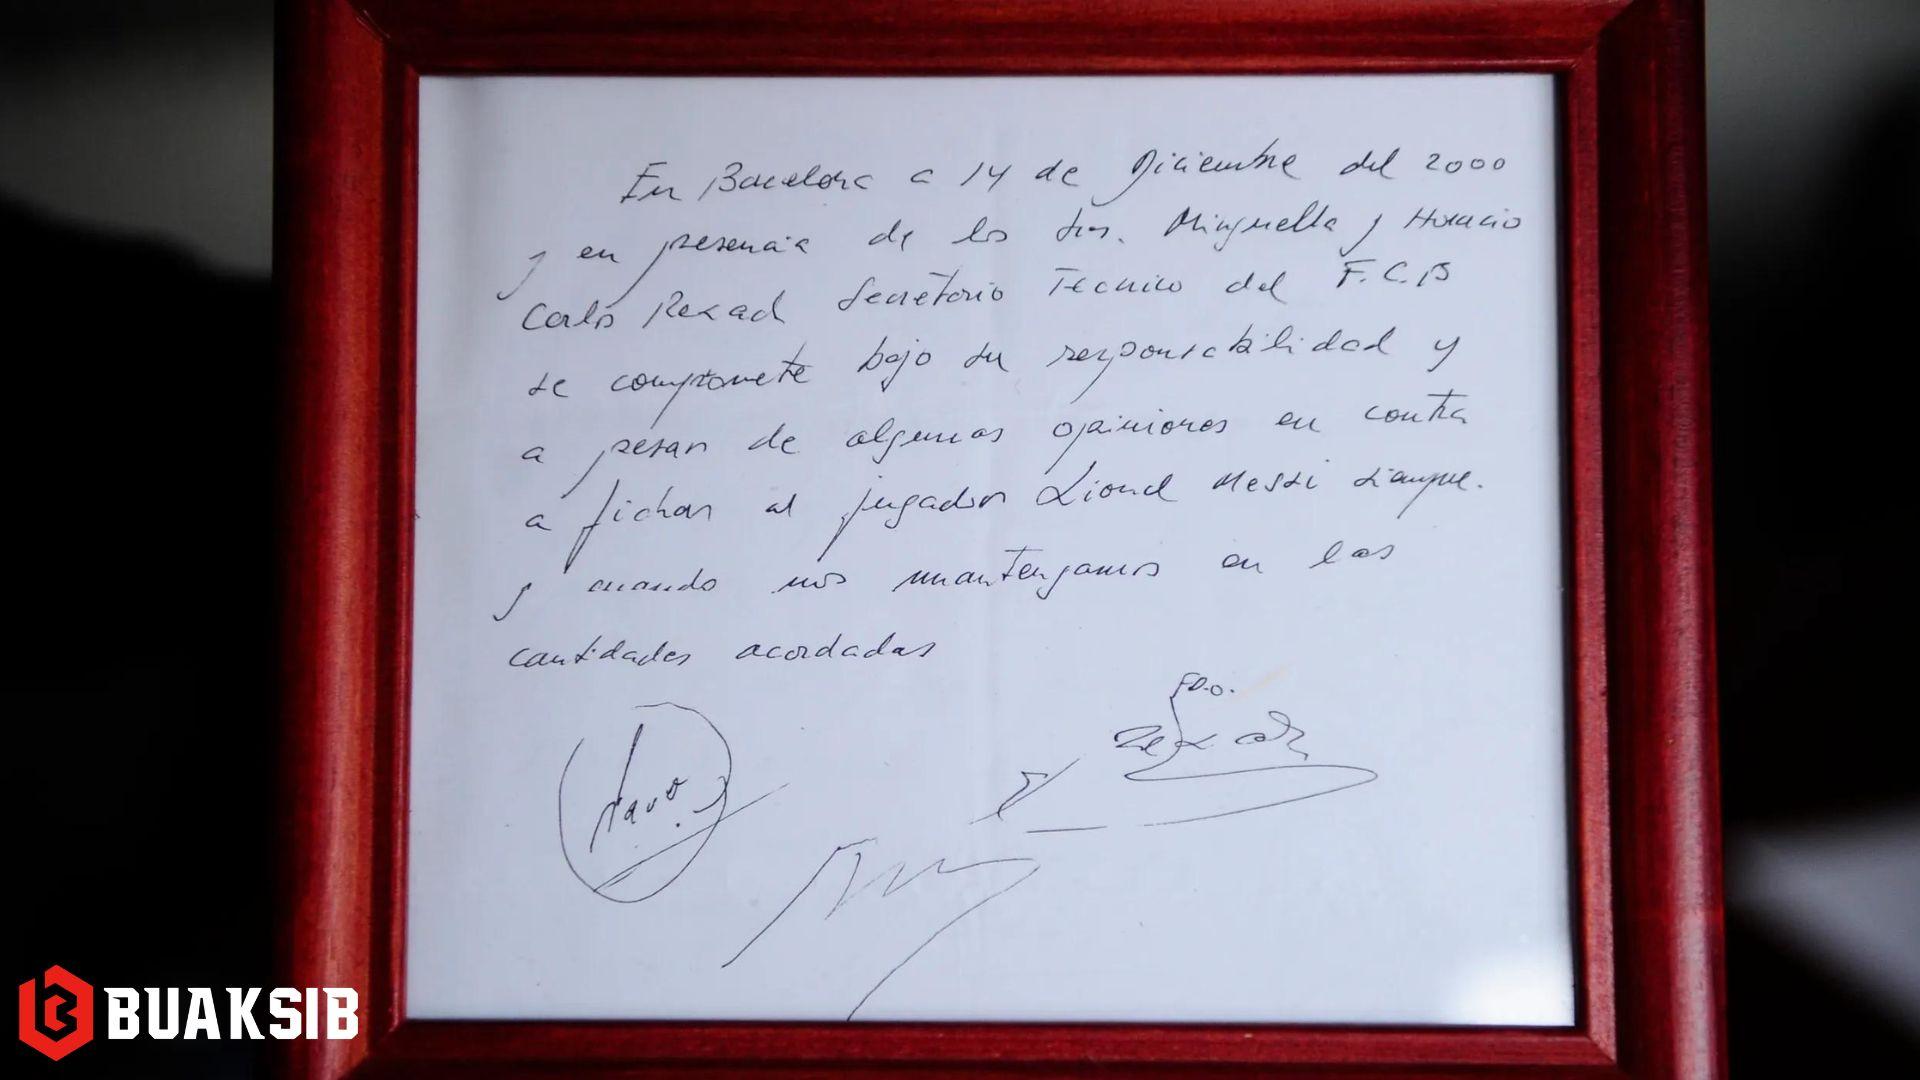 En Barcelona a 14 de Diciembre del 2000
y en presencia de los Srs. Minguella y Horacio
Carlos Rexach Secretario Tecnico del F.C.B
se compromete bajo su responsabilidad y
a pesar de algunas opiniones en contra
a fichar al jugador Lionel Messi siempre
y cuando nos mantengamos en las
cantidades acordadas
BUAKSIB